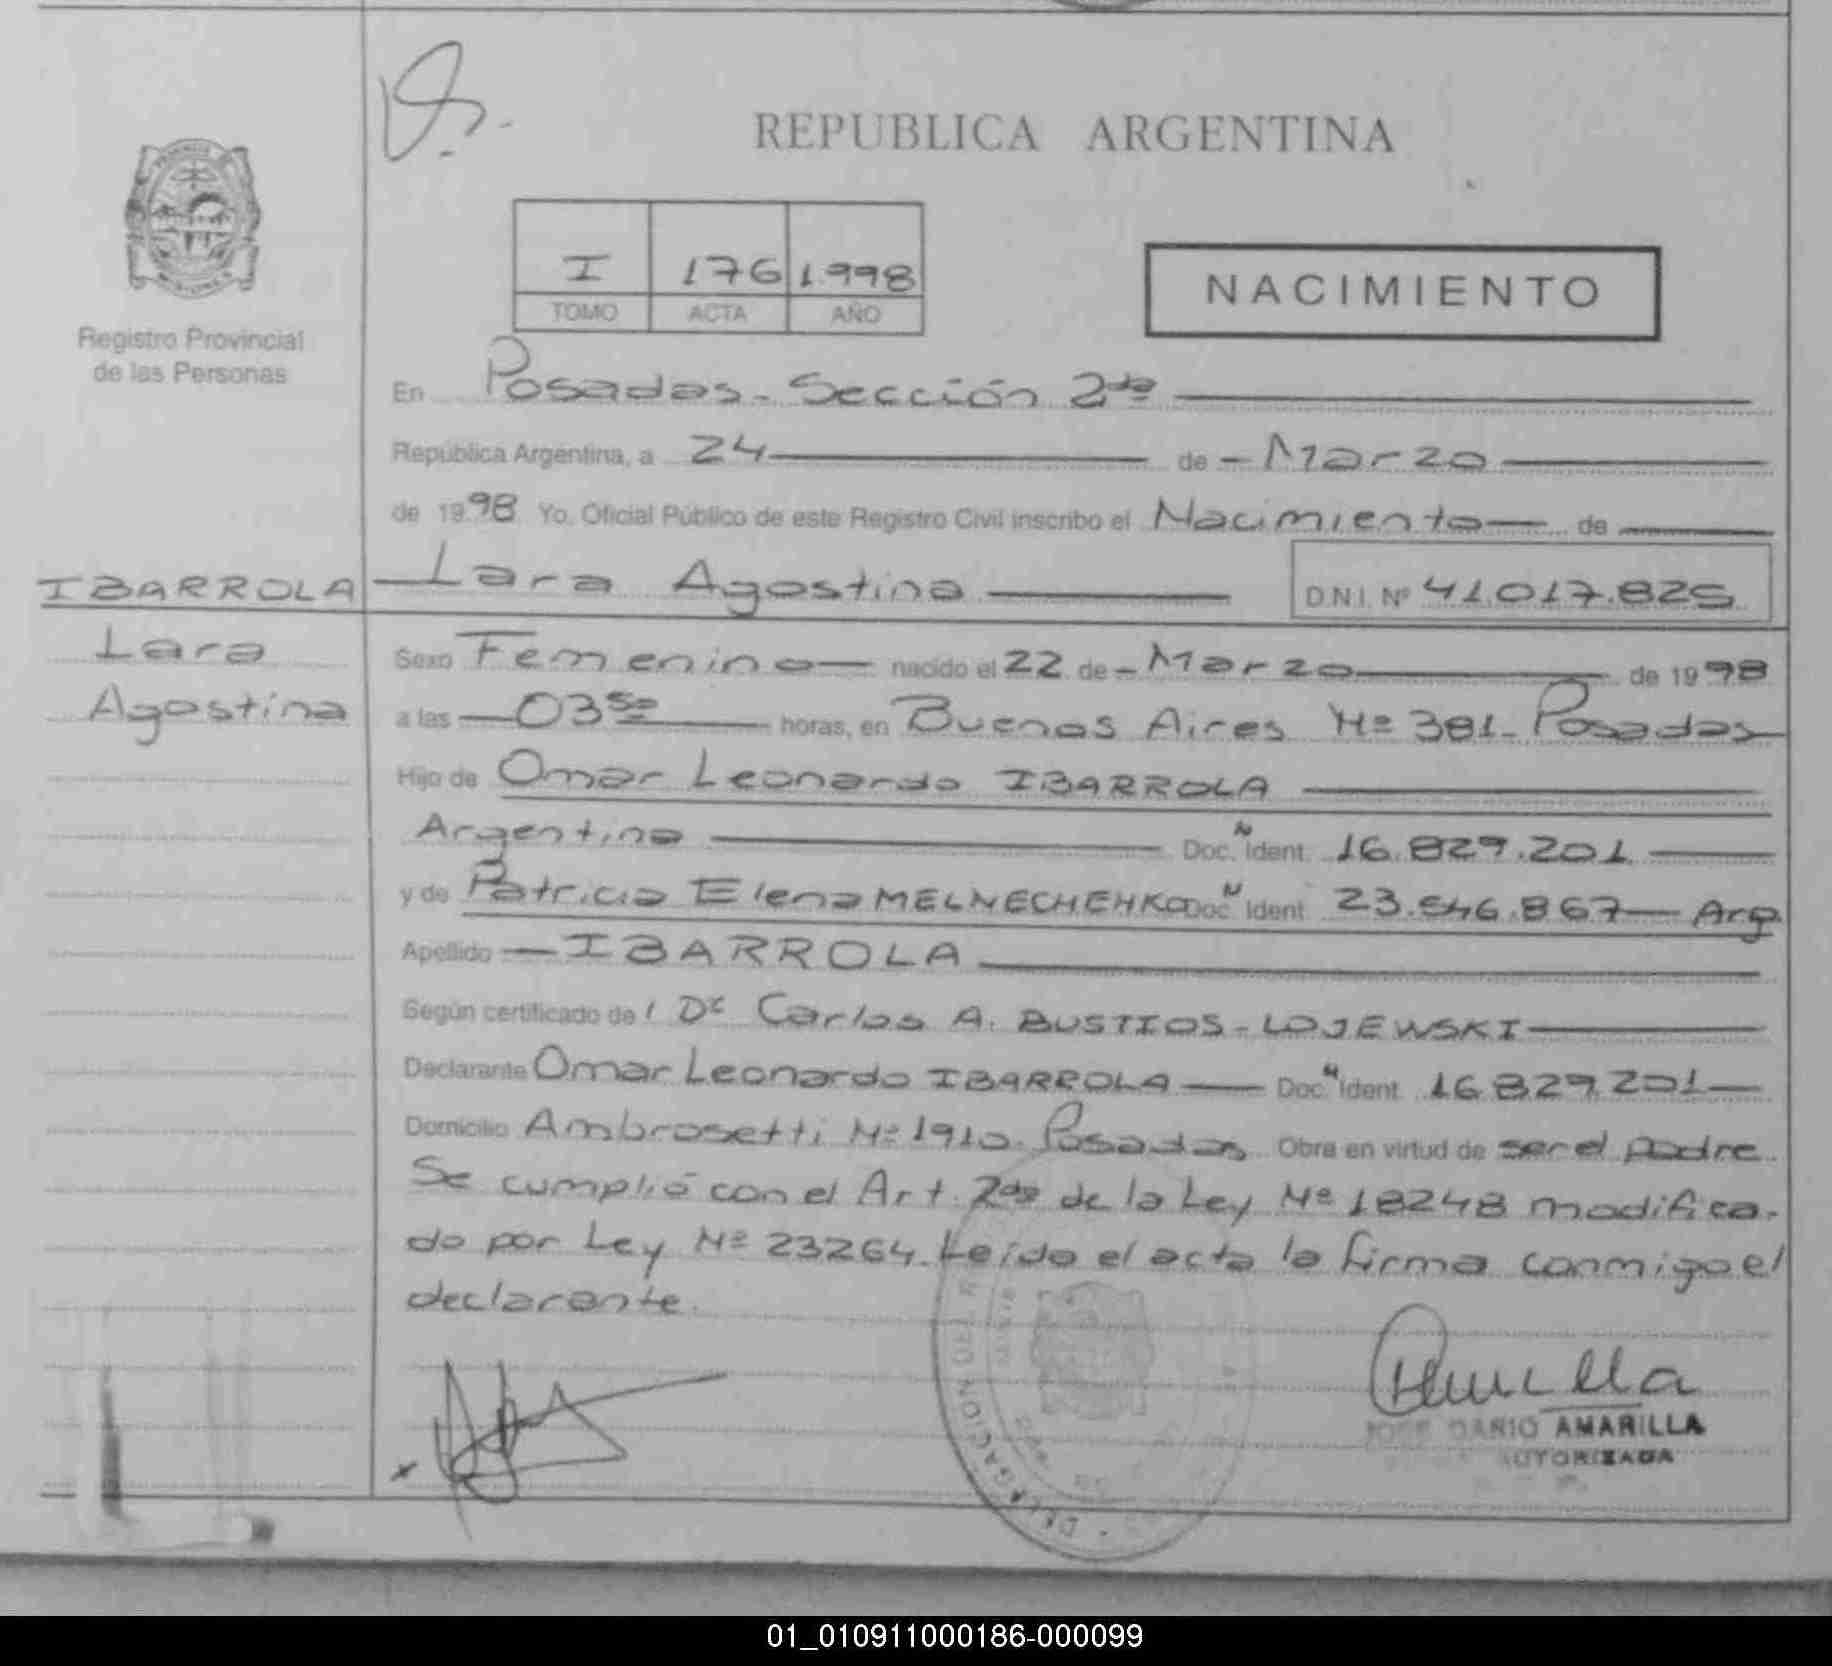 REPUBLICA ARGENTINA
I 176 1998
TOMO ACTA AÑO
NACIMIENTO
Registro Provincial
de las Personas
En Posadas - Sección 2da
República Argentina, a 24 de Marzo
de 1998 Yo, Oficial Público de este Registro Civil inscribo el Nacimiento de
IBARROLA
Lara
Agostina
Lara Agostina D.N.I. Nº 41.017.825
Sexo Femenino nacido el 22 de Marzo de 1998
a las 03 50 horas, en Buenos Aires Nº 381 - Posadas
Hijo de Omar Leonardo IBARROLA
Argentino Doc. N Ident. 16.829.201
y de Patricia Elena MELNECHENKO Doc. N Ident. 23.546.867 Arg.
Apellido IBARROLA
Según certificado de Dr Carlos A. BUSTIOS - LOJEWSKI
Declarante Omar Leonardo IBARROLA Doc. N Ident. 16.829.201
Domicilio Ambrosetti Nº 1910. Posadas Obra en virtud de ser el padre.
Se cumplió con el Art. 2do de la Ley Nº 18248 modifica-
do por Ley Nº 23264. Leído el acta la firma conmigo el
declarante.
DELEGACION DEL
JOSE DARIO AMARILLA
AUTORIZADA
01_010911000186-000099